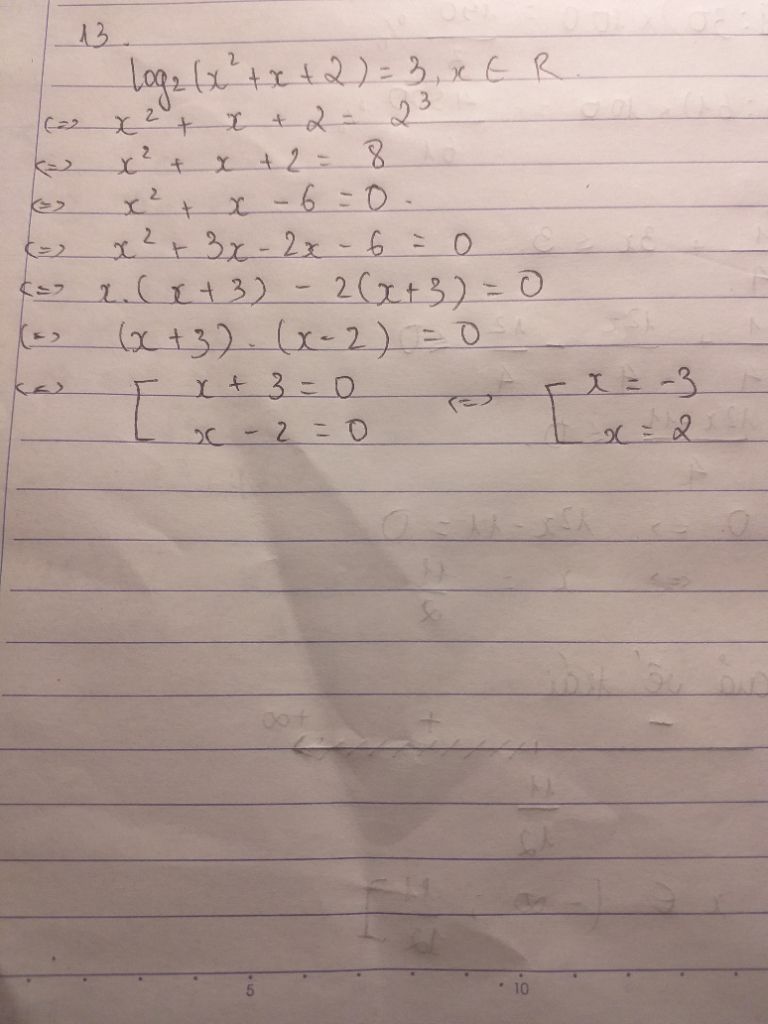 13.
log₂(x² + x + 2) = 3, x ∈ R.
<=> x² + x + 2 = 2³
<=> x² + x + 2 = 8
<=> x² + x - 6 = 0.
<=> x² + 3x - 2x - 6 = 0
<=> x.(x + 3) - 2(x + 3) = 0
<=> (x + 3).(x - 2) = 0
<=> [ x + 3 = 0 <=> [ x = -3
x - 2 = 0 x = 2
5 10